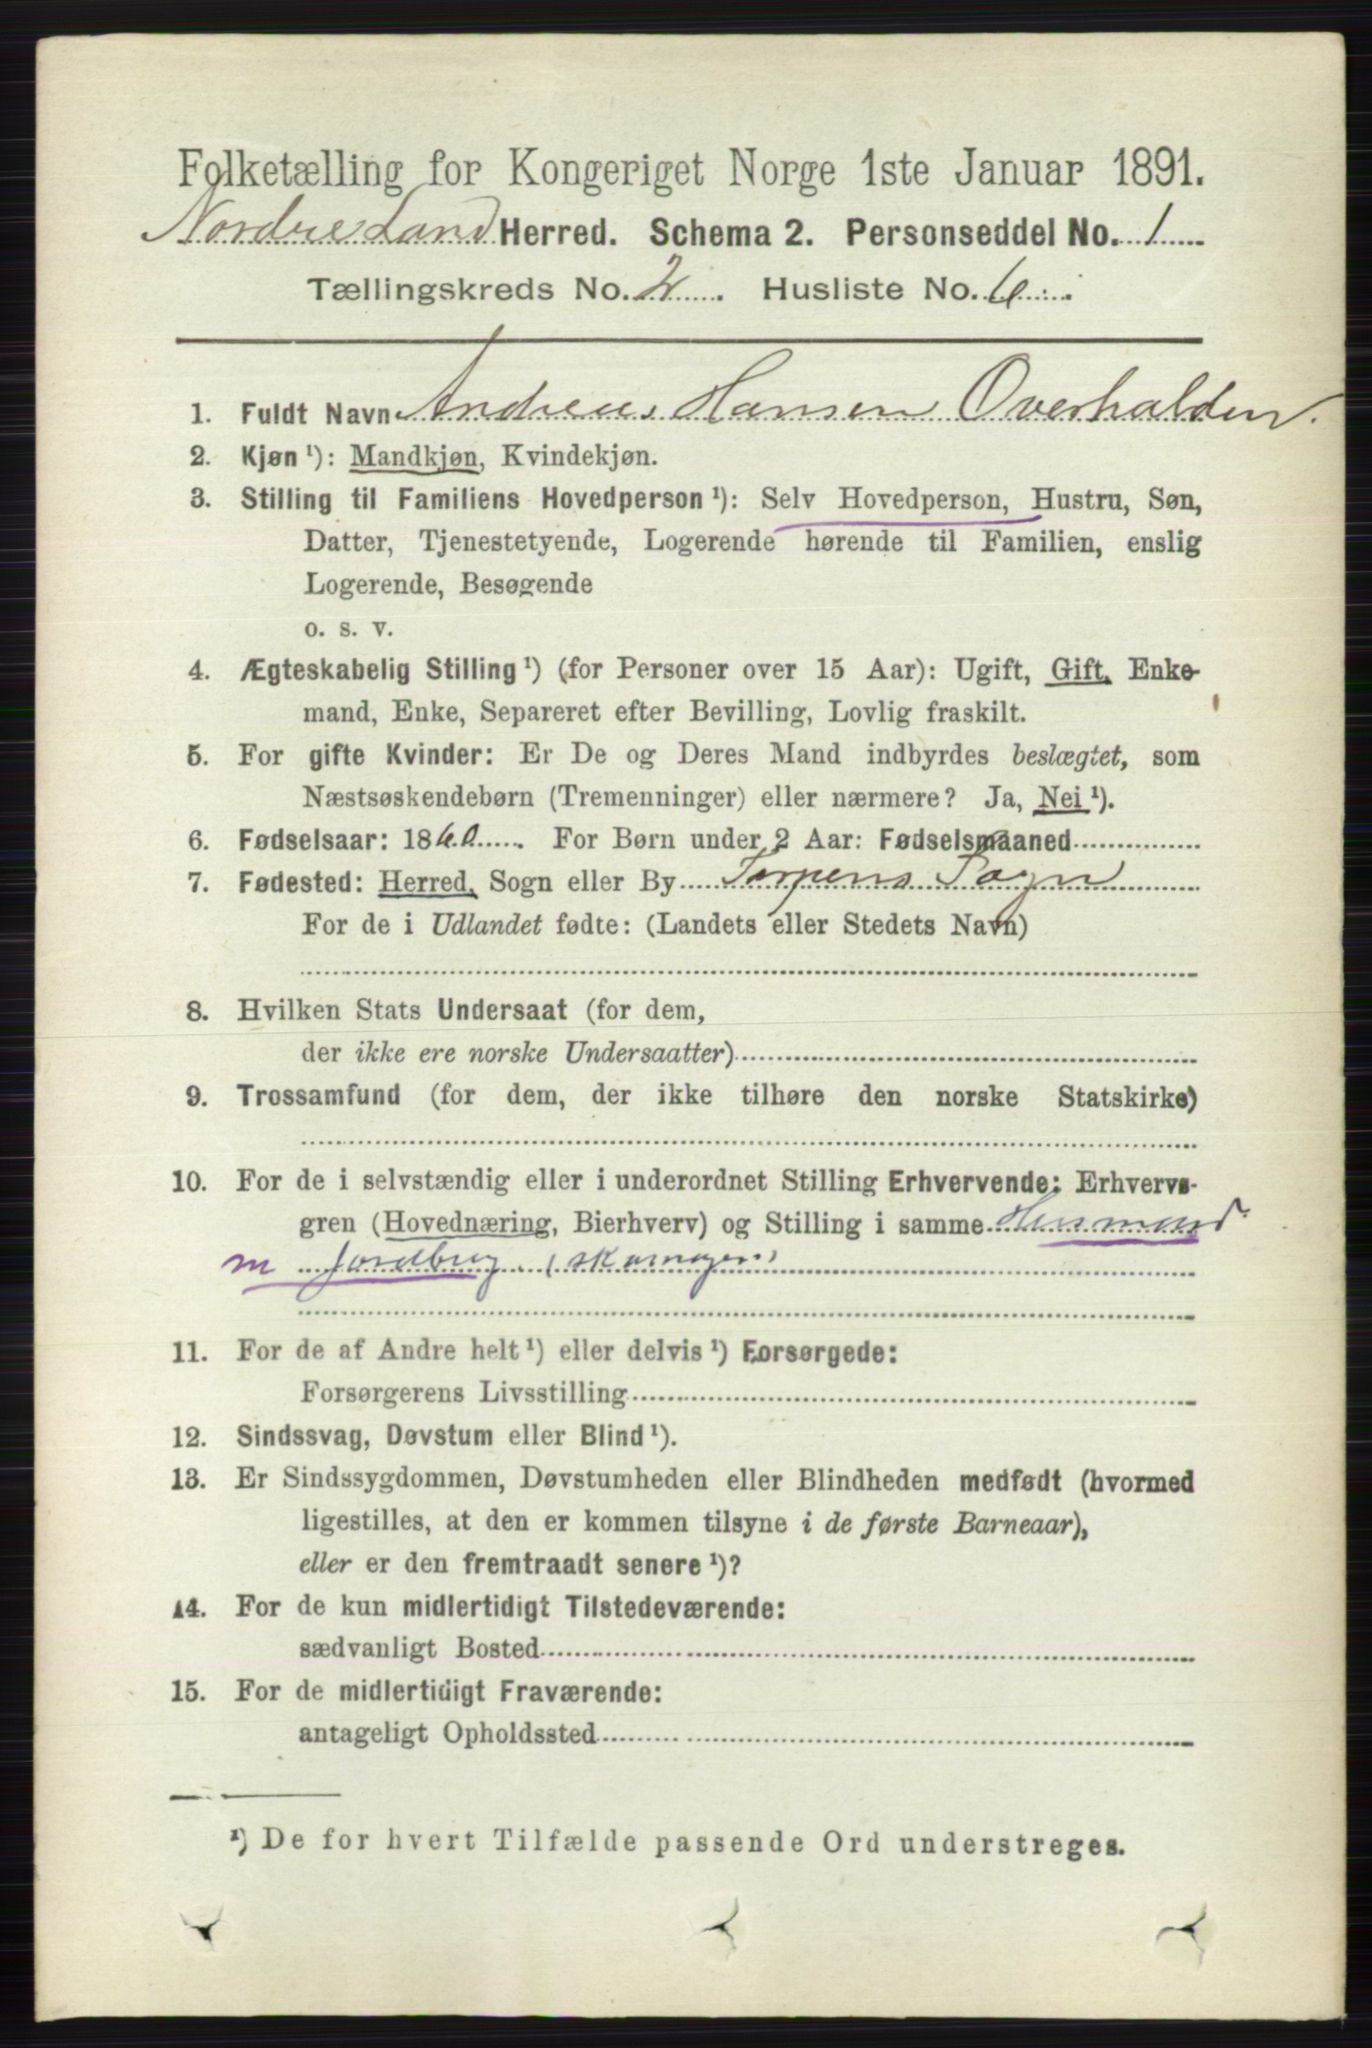 Folketælling for Kongeriget Norge 1ste Januar 1891.
Nordre Land Herred. Schema 2. Personseddel No. 1
Tællingskreds No. 2. Husliste No. 6.
1. Fuldt Navn Andreas Hansen Overhalden.
2. Kjøn ¹): Mandkjøn, Kvindekjøn.
3. Stilling til Familiens Hovedperson ¹): Selv Hovedperson, Hustru, Søn,
Datter, Tjenestetyende, Logerende hørende til Familien, enslig
Logerende, Besøgende
o. s. v.
4. Ægteskabelig Stilling ¹) (for Personer over 15 Aar): Ugift, Gift, Enke-
mand, Enke, Separeret efter Bevilling, Lovlig fraskilt.
5. For gifte Kvinder: Er De og Deres Mand indbyrdes beslægtet, som
Næstsøskendebørn (Tremenninger) eller nærmere? Ja, Nei ¹).
6. Fødselsaar: 1860. For Børn under 2 Aar: Fødselsmaaned
7. Fødested: Herred, Sogn eller By Torpens Sogn
For de i Udlandet fødte: (Landets eller Stedets Navn)
8. Hvilken Stats Undersaat (for dem,
der ikke ere norske Undersaatter)
9. Trossamfund (for dem, der ikke tilhøre den norske Statskirke)
10. For de i selvstændig eller i underordnet Stilling Erhvervende: Erhvervs-
gren (Hovednæring, Bierhverv) og Stilling i samme Husmand
m jordbrug (skomager)
11. For de af Andre helt ¹) eller delvis ¹) Forsørgede:
Forsørgerens Livsstilling
12. Sindssvag, Døvstum eller Blind ¹).
13. Er Sindssygdommen, Døvstumheden eller Blindheden medfødt (hvormed
ligestilles, at den er kommen tilsyne i de første Barneaar),
eller er den fremtraadt senere ¹)?
14. For de kun midlertidigt Tilstedeværende:
sædvanligt Bosted
15. For de midlertidigt Fraværende:
antageligt Opholdssted
¹) De for hvert Tilfælde passende Ord understreges.